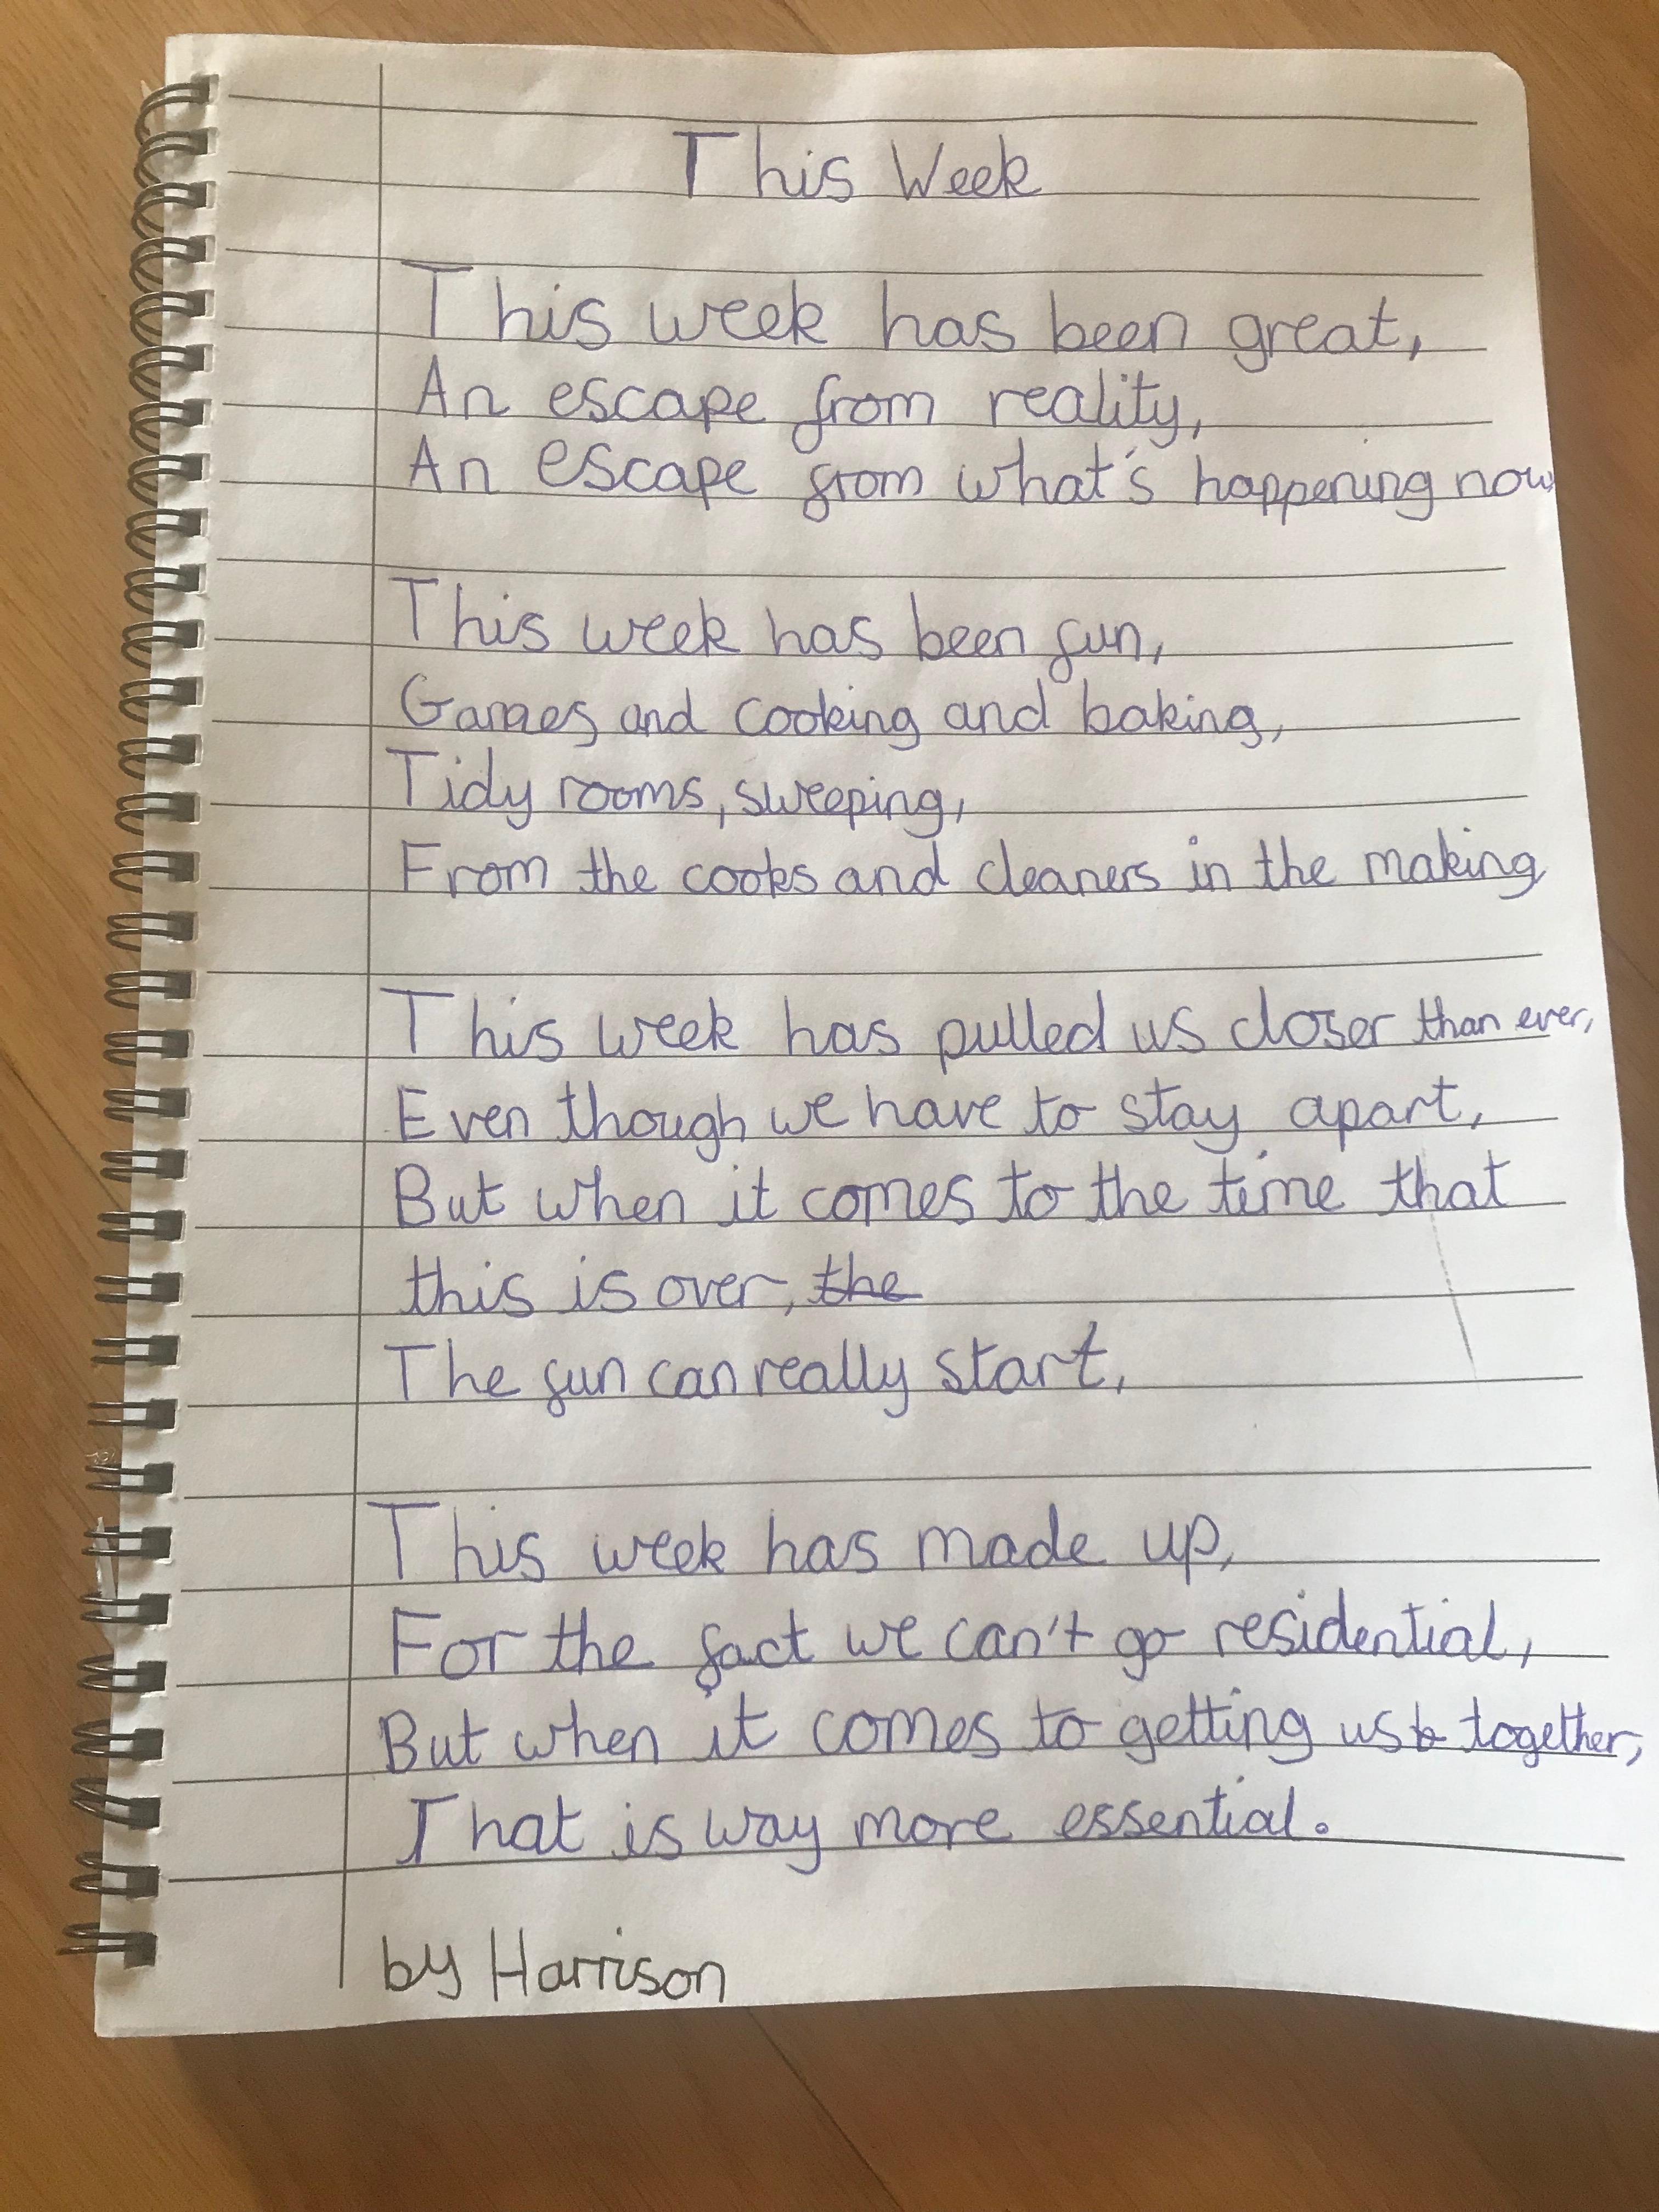 This Week
This week has been great,
An escape from reality,
An escape from what's happening now,
This week has been fun,
Games, and cooking and baking,
Tidy rooms, sweeping,
From the cooks and cleaners in the making
This week has pulled us closer than ever,
Even though we have to stay apart,
But when it comes to the time that
this is over, the
The fun can really start,
This week has made up,
For the fact we can't go residential,
But when it comes to getting us together,
That is way more essential.
by Harrison